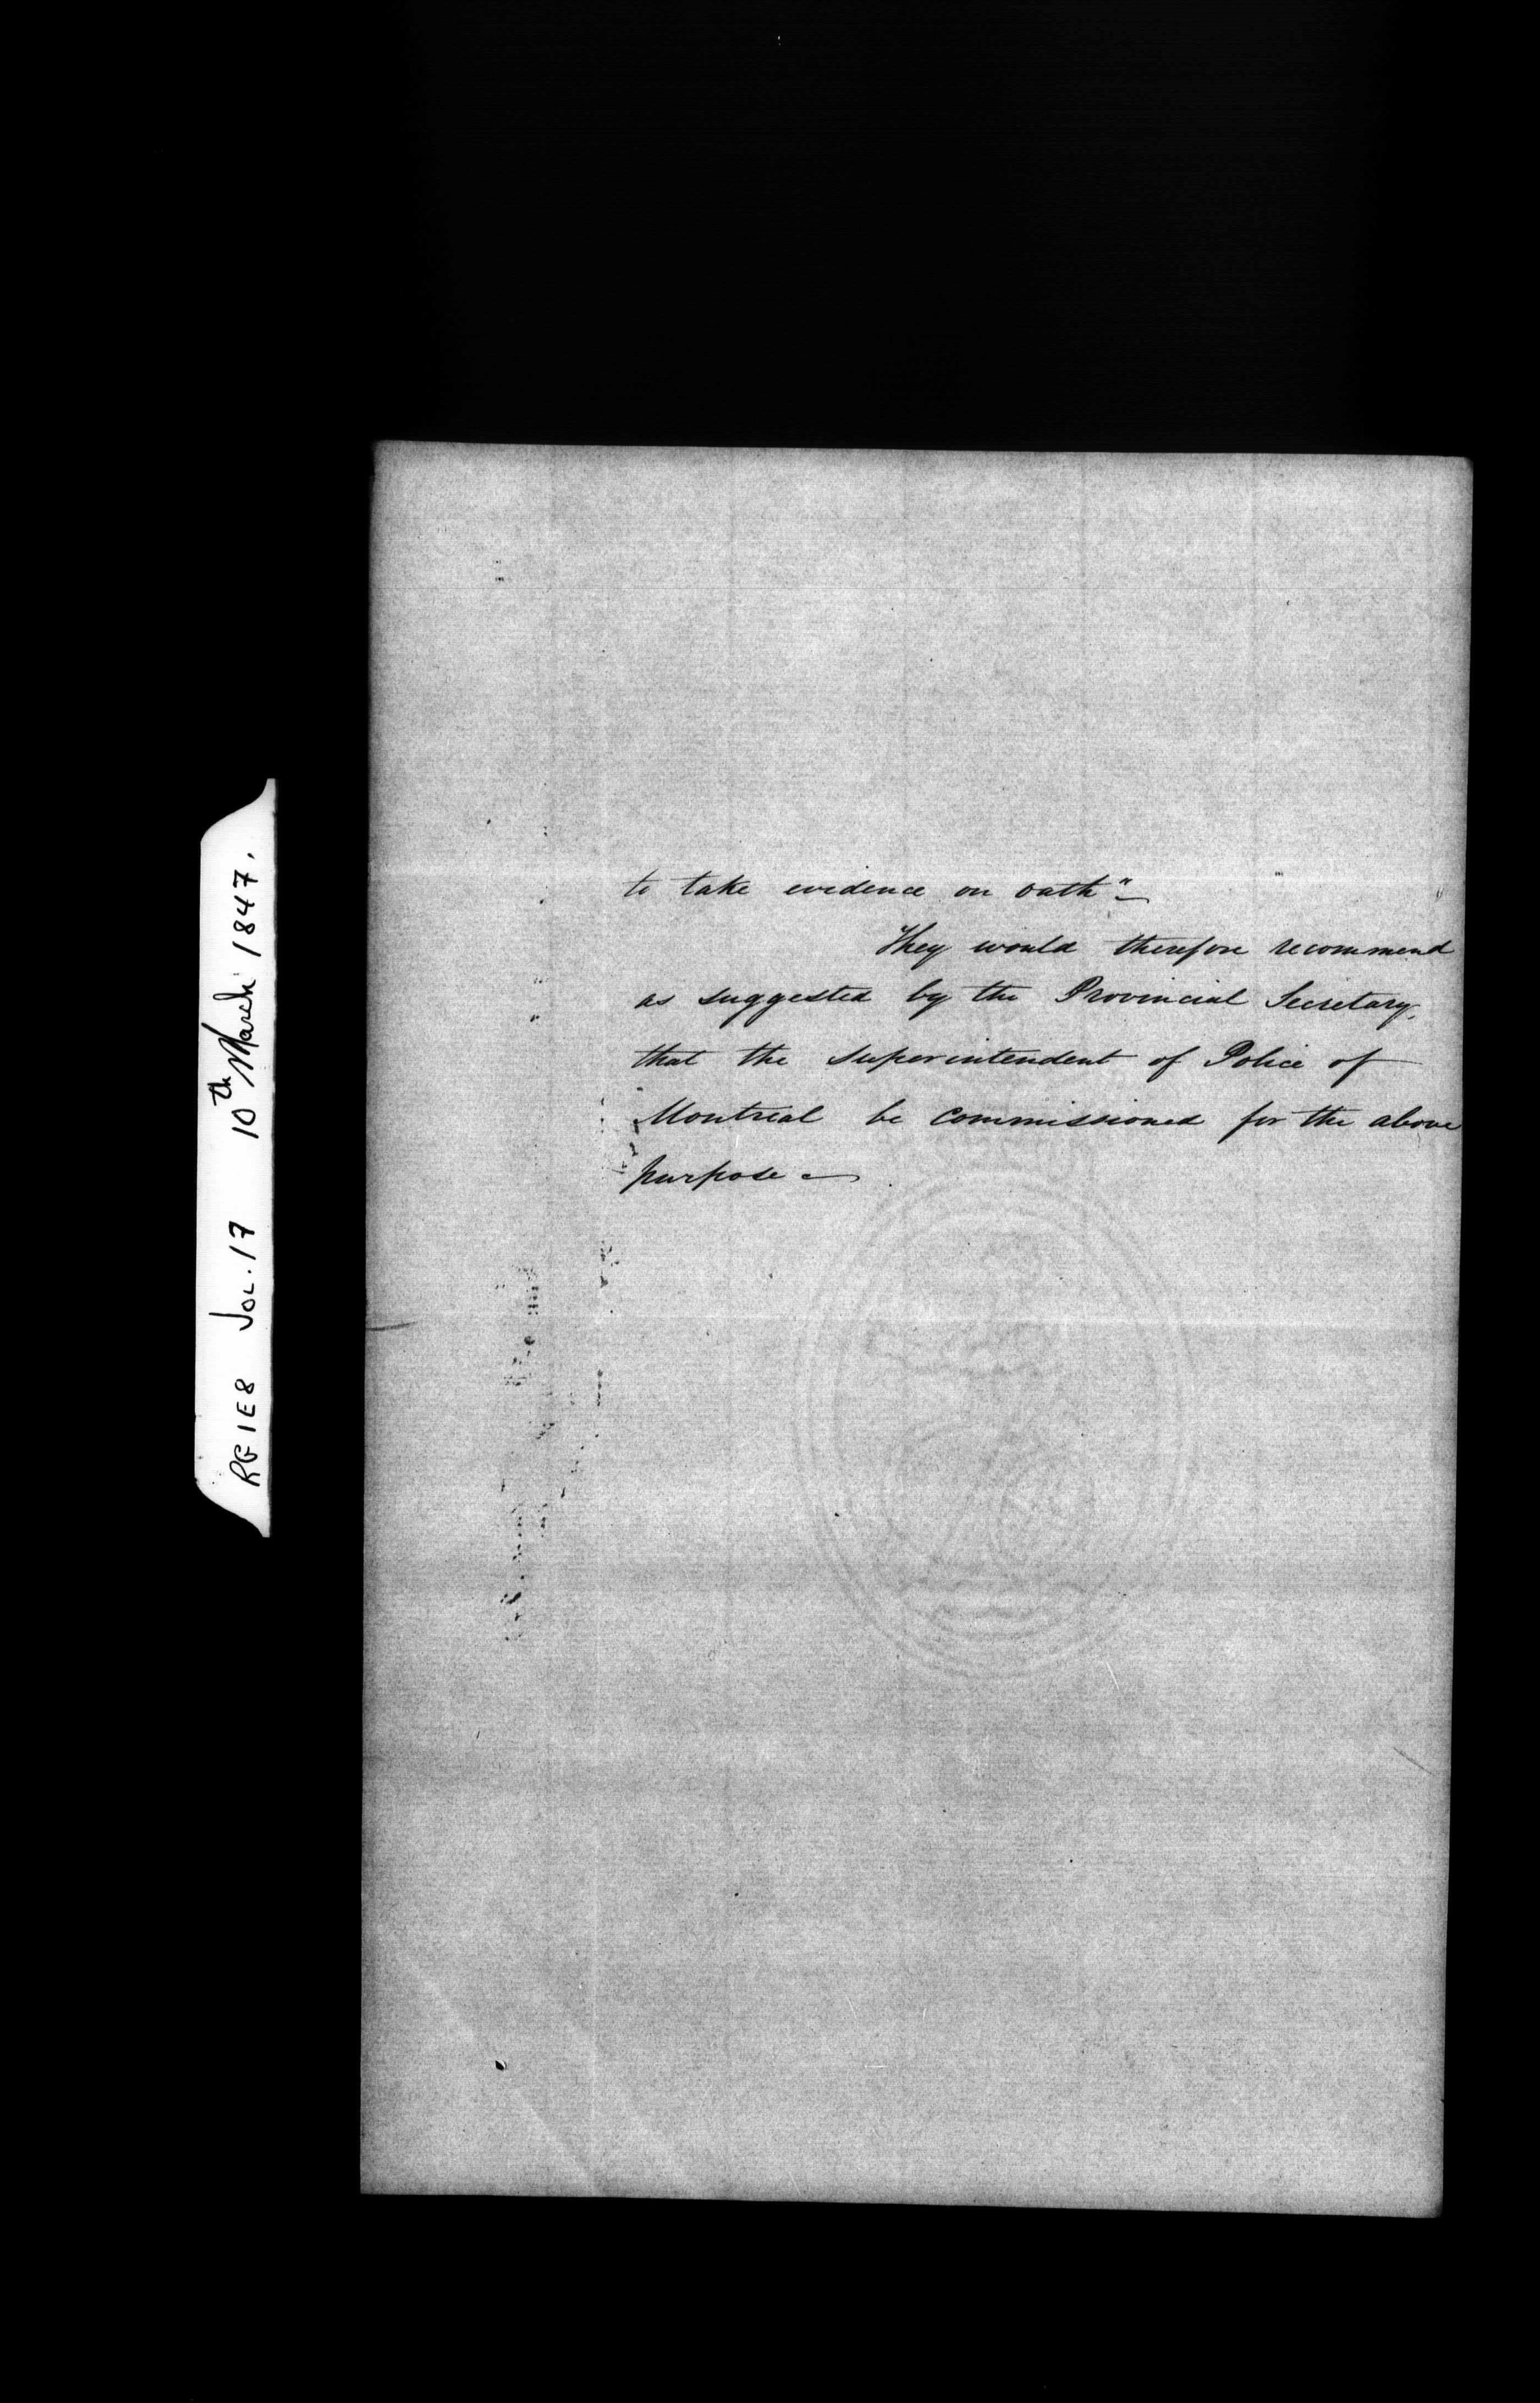 to take evidence on oath"—
They would therefore recommend
as suggested by the Provincial Secretary,
that the Superintendent of Police of
Montreal be commissioned for the above
purpose —
RG 1 E8 Vol. 17 10th March 1847.